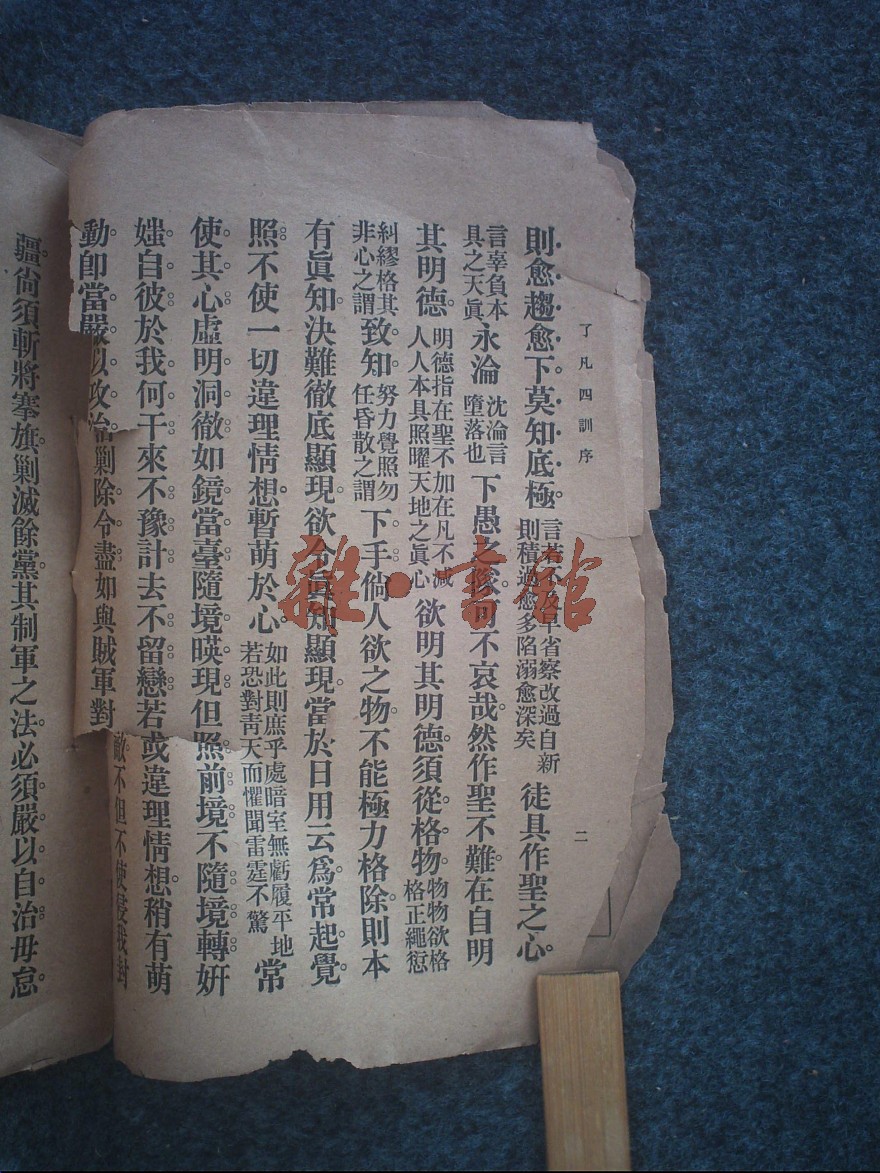 了凡四訓序
二
則愈趨愈下。莫知底極。言若不及早省察改過自新則積過愈多陷溺愈深矣徒具作聖之心。
言辜負本具之天眞永淪沈淪言墮落也下愚之隊。可不哀哉。然作聖不難在自明
其明德。明德指在聖不加在凡不減人人本具照曜天地之眞心欲明其明德須從格物。物物欲格格正繩愆
糾繆格其非心之謂致知努力覺照勿任昏散之謂下手倘人欲之物不能極力格除則本
有眞知決難徹底顯現欲令眞知顯現當於日用云爲常起覺
照不使一切違理情想暫萌於心如此則庶乎處暗室無虧履平地若恐對靑天而懼聞雷霆不驚常
使其心虛明洞徹如鏡當臺隨境暎現但照前境不隨境轉妍
媸自彼於我何干來不豫計去不留戀若或違理情想稍有萌
動卽當嚴以攻治剿除令盡如與賊軍對敵不但不使侵我封
疆尙須斬將搴旗剿滅餘黨其制軍之法必須嚴以自治毋怠
雜·書館